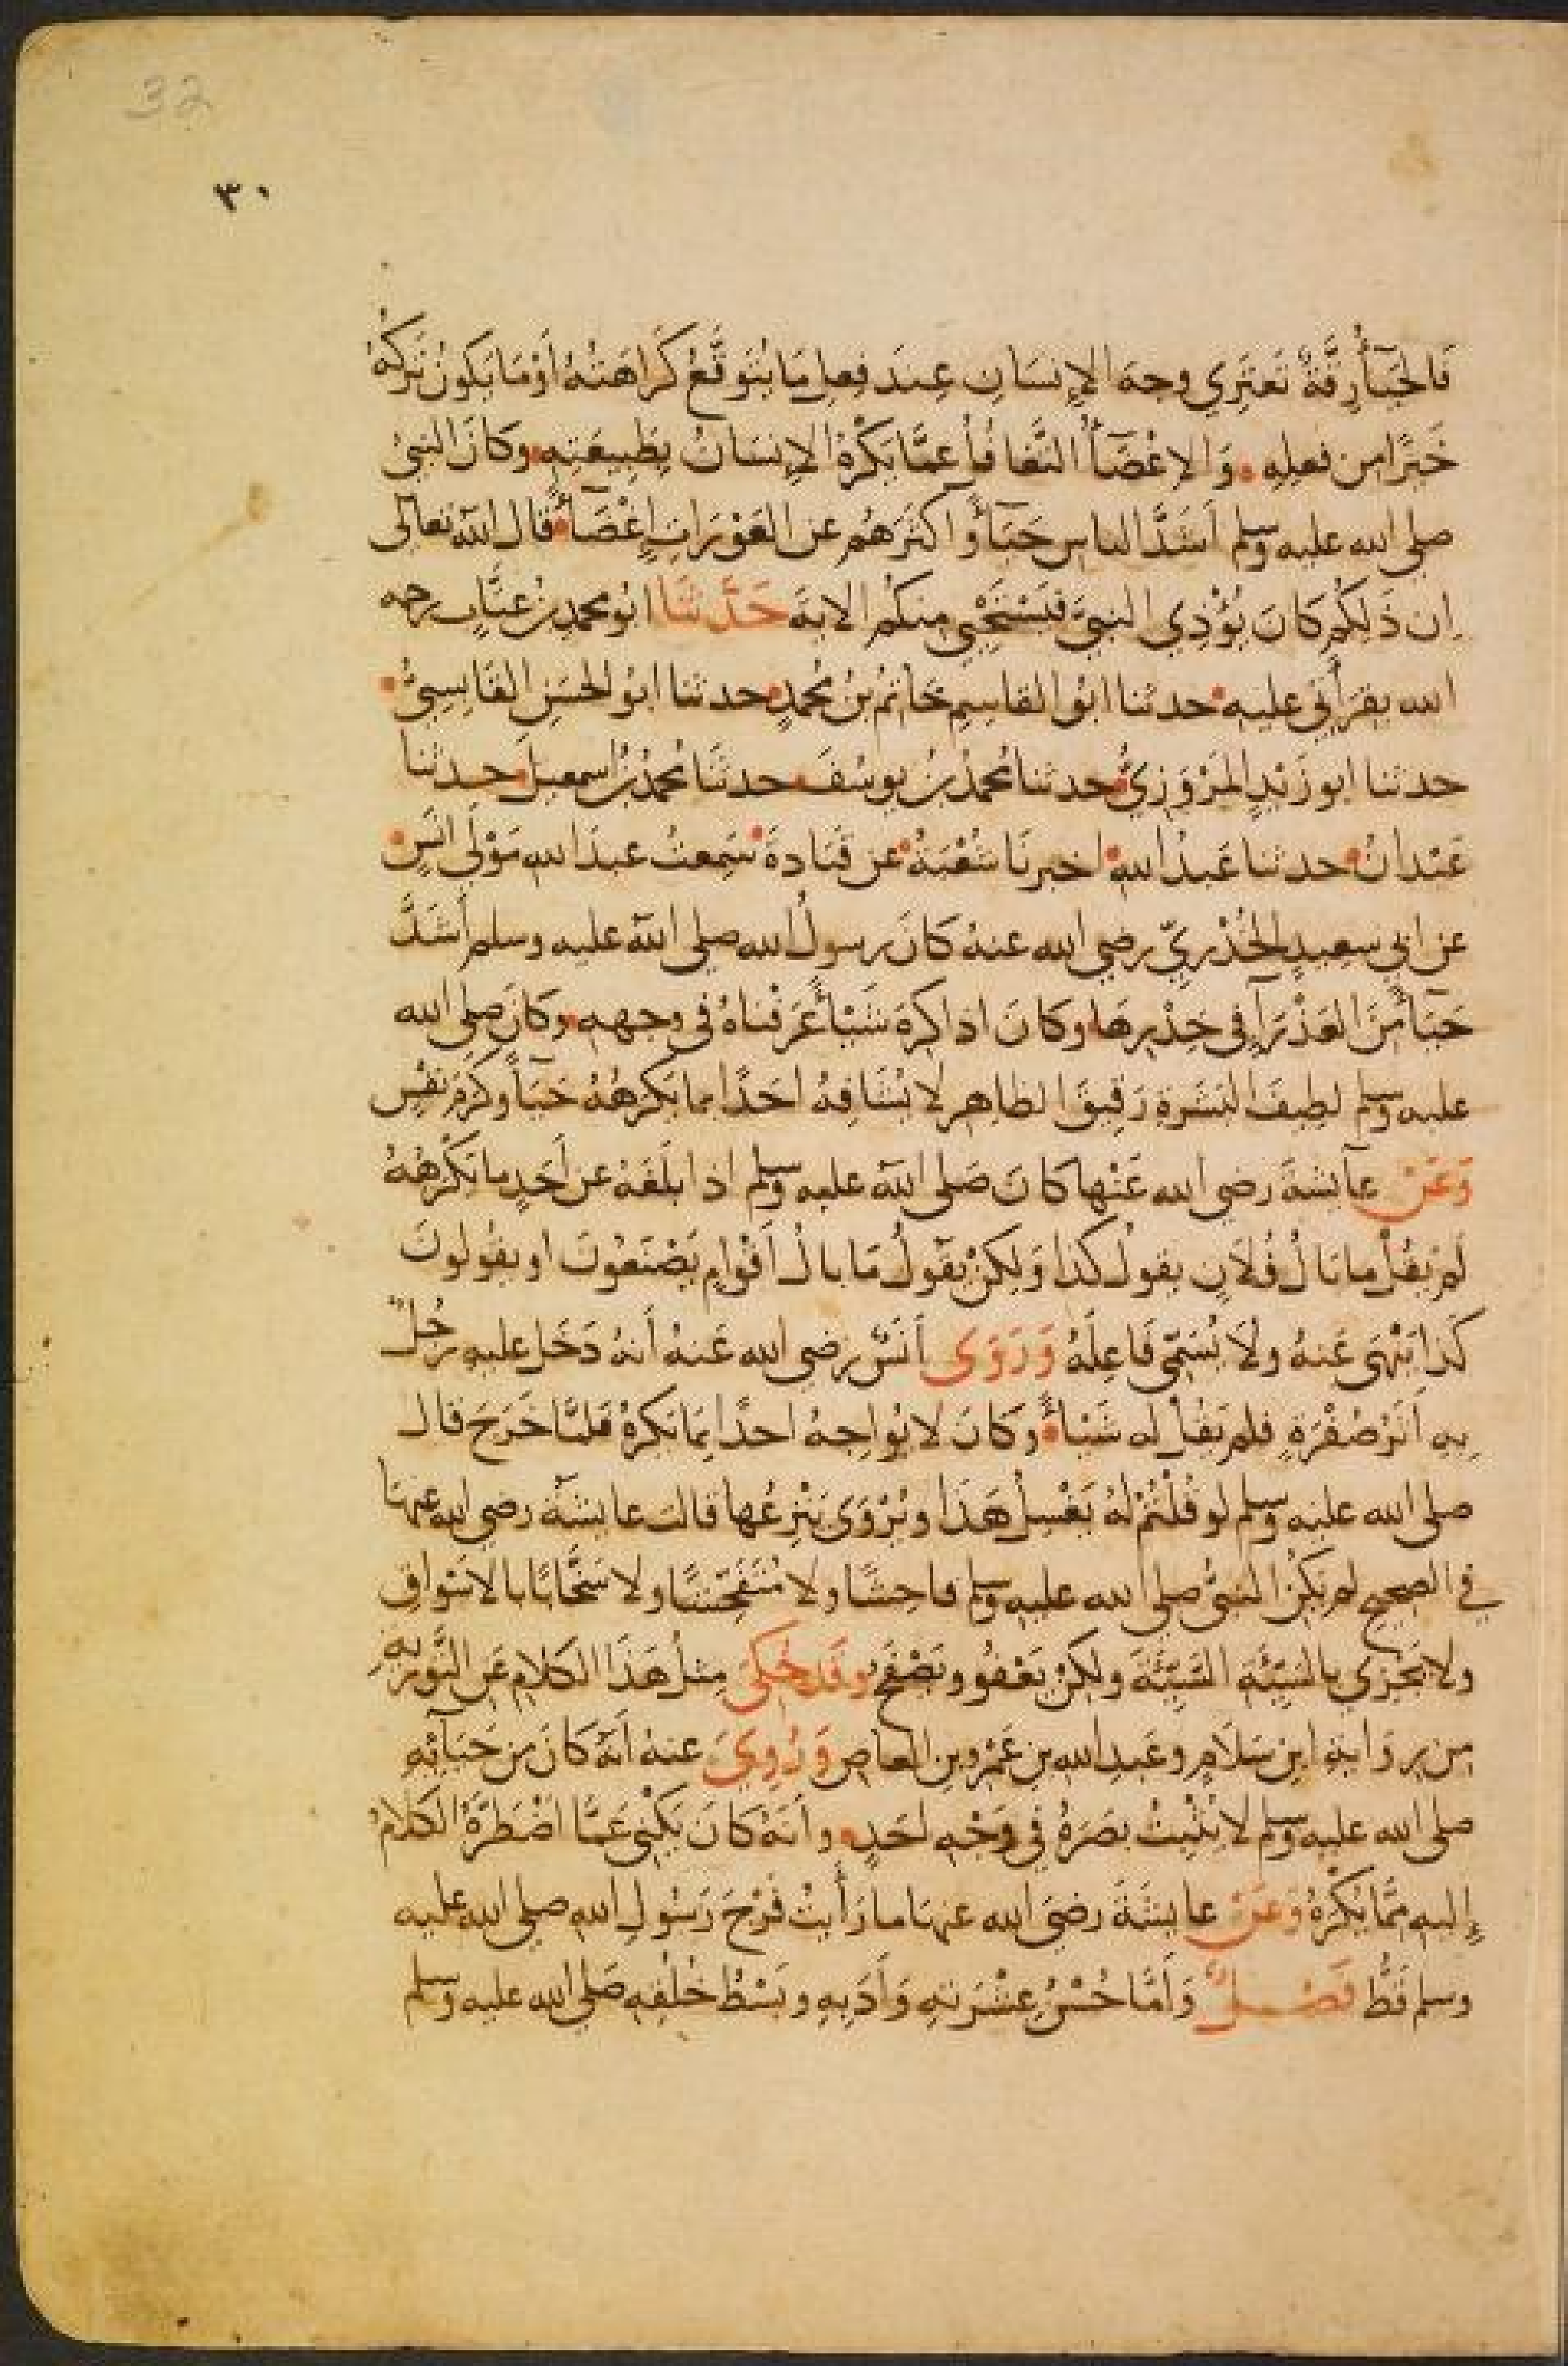 32
٣٠
فَالحَيَآءُ رِقَّةٌ تَعتَرِي وجهَ الإِنسَانِ عِندَ فِعلِ مَا يُتَوَقَّعُ كَرَاهَتُهُ أَوْ مَا يَكونُ تَركُهُ
خَيرًا من فعلِهِ وَالاِغْضَآءُ التَّغافُلُ عمَّا يَكْرَهُ الاِنسَانُ بِطَبِيعَتِهِ وكَانَ النبيُّ
صلى الله عليه وسلم أَشَدَّ الناسِ حَيَآءً وَاكثَرَهُم عن العَوْرَاتِ اِغْضَآءً قال اللهُ تعالى
اِن ذَلِكُم كَانَ يُؤْذِي النبيَّ فَيَسْتَحْيِي مِنكُم الاية حَدَّثَنَا ابُو محمدِ بنُ عتَّابٍ رحمه
الله بِقرَأَتي عليهِ حدثنا ابُو القاسِمِ حَاتمُ بنُ مُحمدٍ حدثنا ابُو الحَسَنِ القَابِسِيُّ
حدثنا ابو زَيْدٍ المَرْوَزِيُّ حدثنا مُحمدُ بنُ يوسُفَ حدثَنَا مُحمدُ بنُ اسمعيلَ حدثنا
عَبْدانُ حدثنا عَبدُ اللهِ اخبرنَا شُعْبَةُ عن قَتَادةَ سَمِعتُ عبدَ الله مَوْلَى انَسٍ
عن ابي سعيدٍ الخُدْرِيِّ رضي الله عنهُ كَانَ رسولُ الله صلى الله عليه وسلم أَشَدَّ
حَيَآءً مِنَ العَذْرَآءِ في خِدْرِهَا وكَانَ اذا كَرِهَ شَيْأً عَرَفناهُ في وجههِ وكَانَ صلى الله
عليه وسلم لطِيفَ البَشَرَةِ رَقِيقَ الظاهرِ لا يُشَافِهُ احَدًا بما يَكرَهُهُ حَيَآءً وَكَرَمَ نَفْسٍ
وَعَنْ عآيشةَ رضي الله عَنْها كَانَ صَلى الله عليه وسلم اذا بلَغَهُ عن أَحَدٍ ما يَكْرَهُهُ
لم يَقُلْ ما بَالُ فُلاَنٍ يقولُ كذا وَلكِنْ يَقُولُ مَا بالُ أَقْوَامٍ يَصْنَعُونَ او يقُولونَ
كَذا يَنْهَى عَنهُ ولاَ يُسَمِّي فَاعِلَهُ وَرَوَى أَنَسٌ رضي الله عَنهُ أَنهُ دَخَل عليهِ رَجُلٌ
بِهِ أَثَرُ صُفْرَةٍ فلم يَقُلْ له شَيْأً وكَانَ لا يُواجِهُ احدًا بِمَا يَكرهُ فلمَّا خَرَجَ قال
صلى الله عليه وسلم لو قُلْتُمْ لهُ يَغْسِلُ هَذَا ويُرْوَى يَنْزِعُها قالت عايشَةُ رضي الله عنها
في الصحيح لم يَكُنْ النبيُّ صلى الله عليه وسلم فاحِشًا ولا مُتَفَحِّشًا ولا سَخَّابًا بالاَسْوَاقِ
ولا يَجْزِي بالسَّيِّئَةِ السَّيِّئَةَ ولكِنْ يَعْفُو ويَصْفَحُ وَقَد حُكِيَ مِثلُ هَذَا الكلامِ عَنِ التَّوريةِ
من رِوَايةِ ابنِ سَلاَمٍ وعَبدِ الله بنِ عَمْرِو بنِ العاصِ وَرُوِيَ عنهُ أَنهُ كَانَ مِن حَيَآئِهِ
صلى الله عليه وسلم لا يُثْبِتُ بصَرَهُ في وَجْهِ احَدٍ وأَنهُ كَانَ يَكْنِي عَمَّا اضْطَرَّهُ الكَلامُ
إِليهِ مِمَّا يَكْرَهُ وَعَنْ عايشَةَ رضيَ الله عنهَا ما رَأَيتُ فَرْجَ رَسُولِ اللهِ صلى الله عليه
وسلم قَطُّ فَصْلٌ وَأَمَّا حُسْنُ عِشْرَتهِ وَأَدَبِهِ وبَسْطُ خُلُقِهِ صَلى الله عليه وسلم